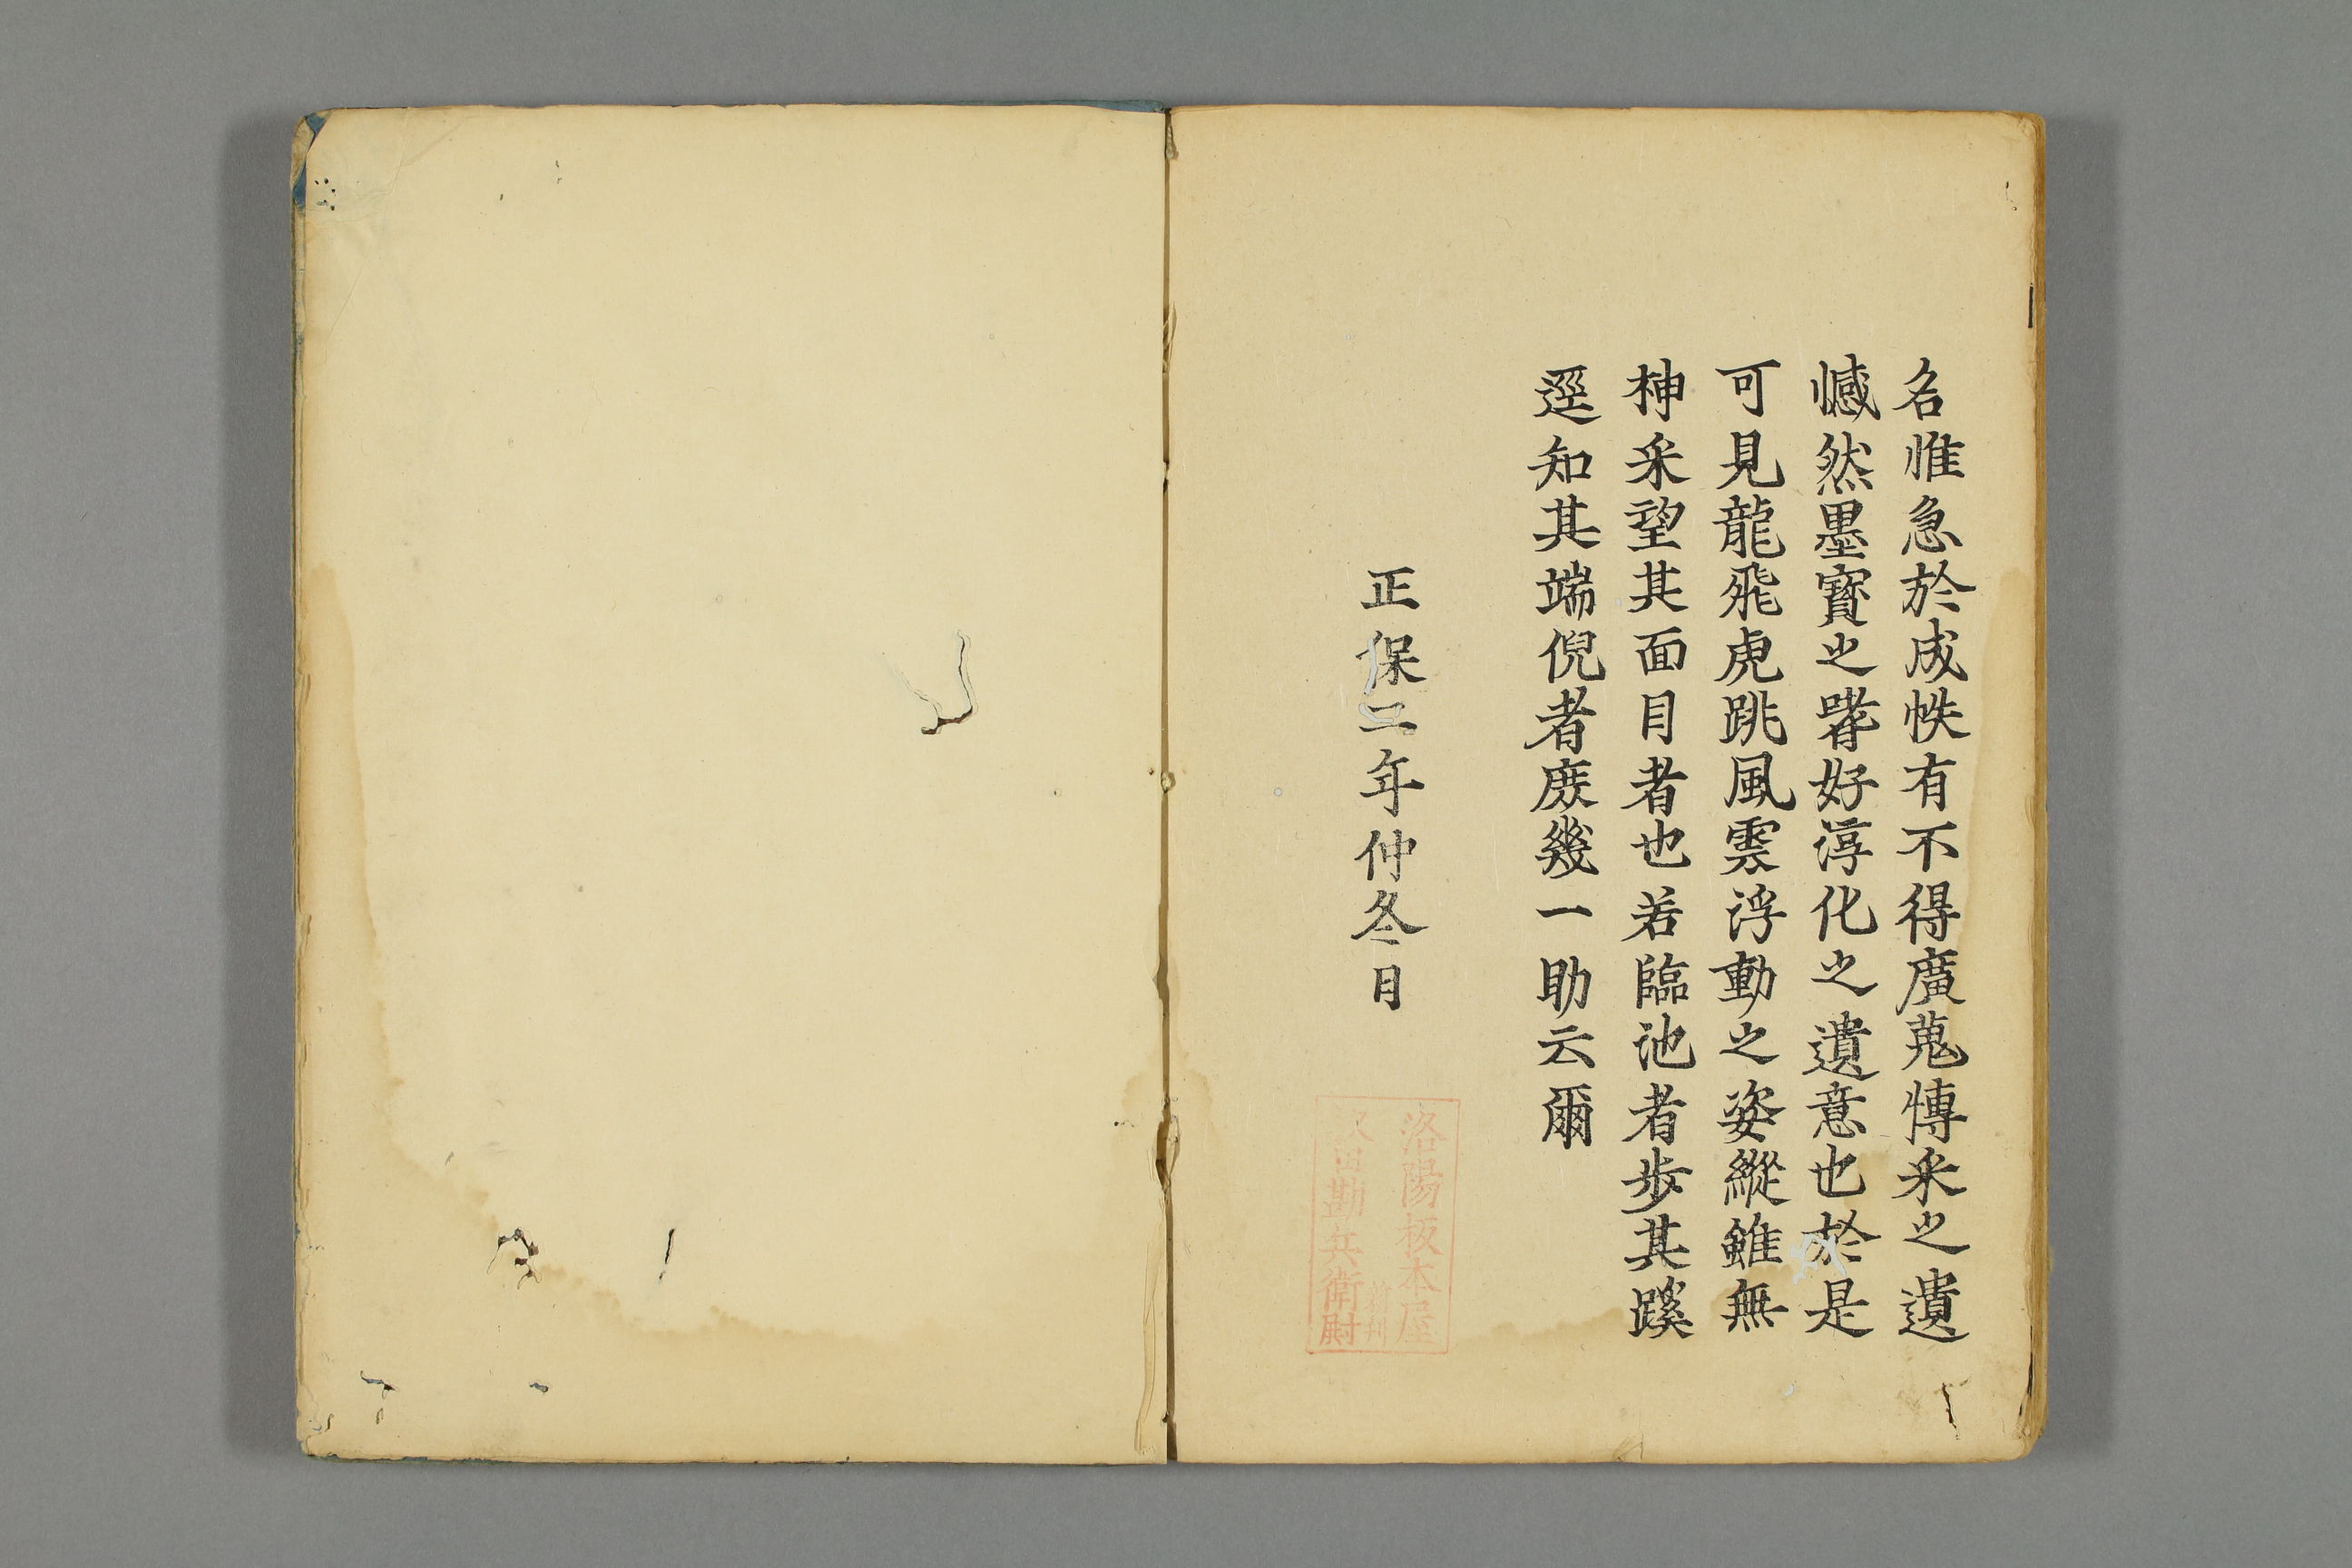 名惟急於成帙有不得廣蒐慱采之遺
憾然墨寶之嗜好淳化之遺意也於是
可見龍飛虎跳風雲浮動之姿縱雖無
神采望其面目者也若臨池者步其蹊
逕知其端倪者庶幾一助云爾
正保二年仲冬日
洛陽板木屋
勘兵衛尉